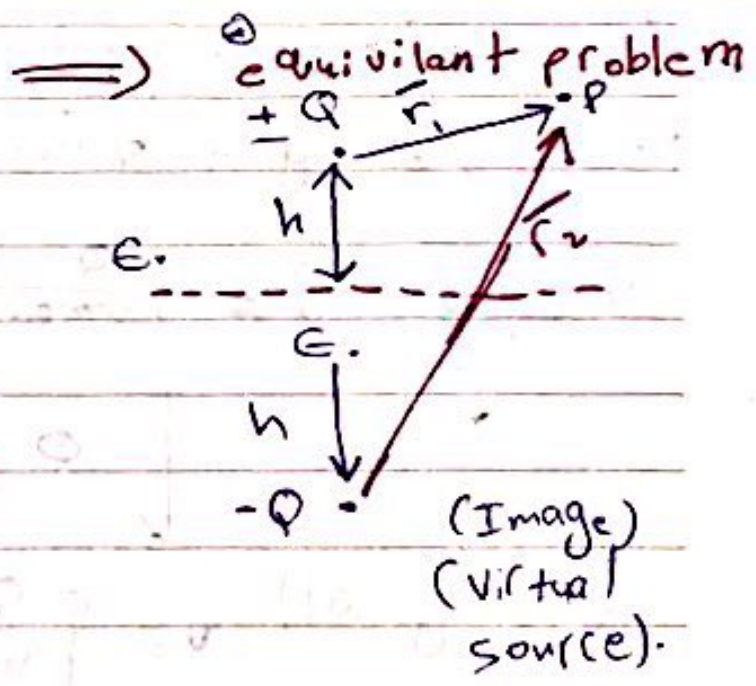 ⇒ equivilant problem
± Q r₁ P
h
ϵ. r₂
ϵ.
h
-Q (Image)
(Virtual
source).